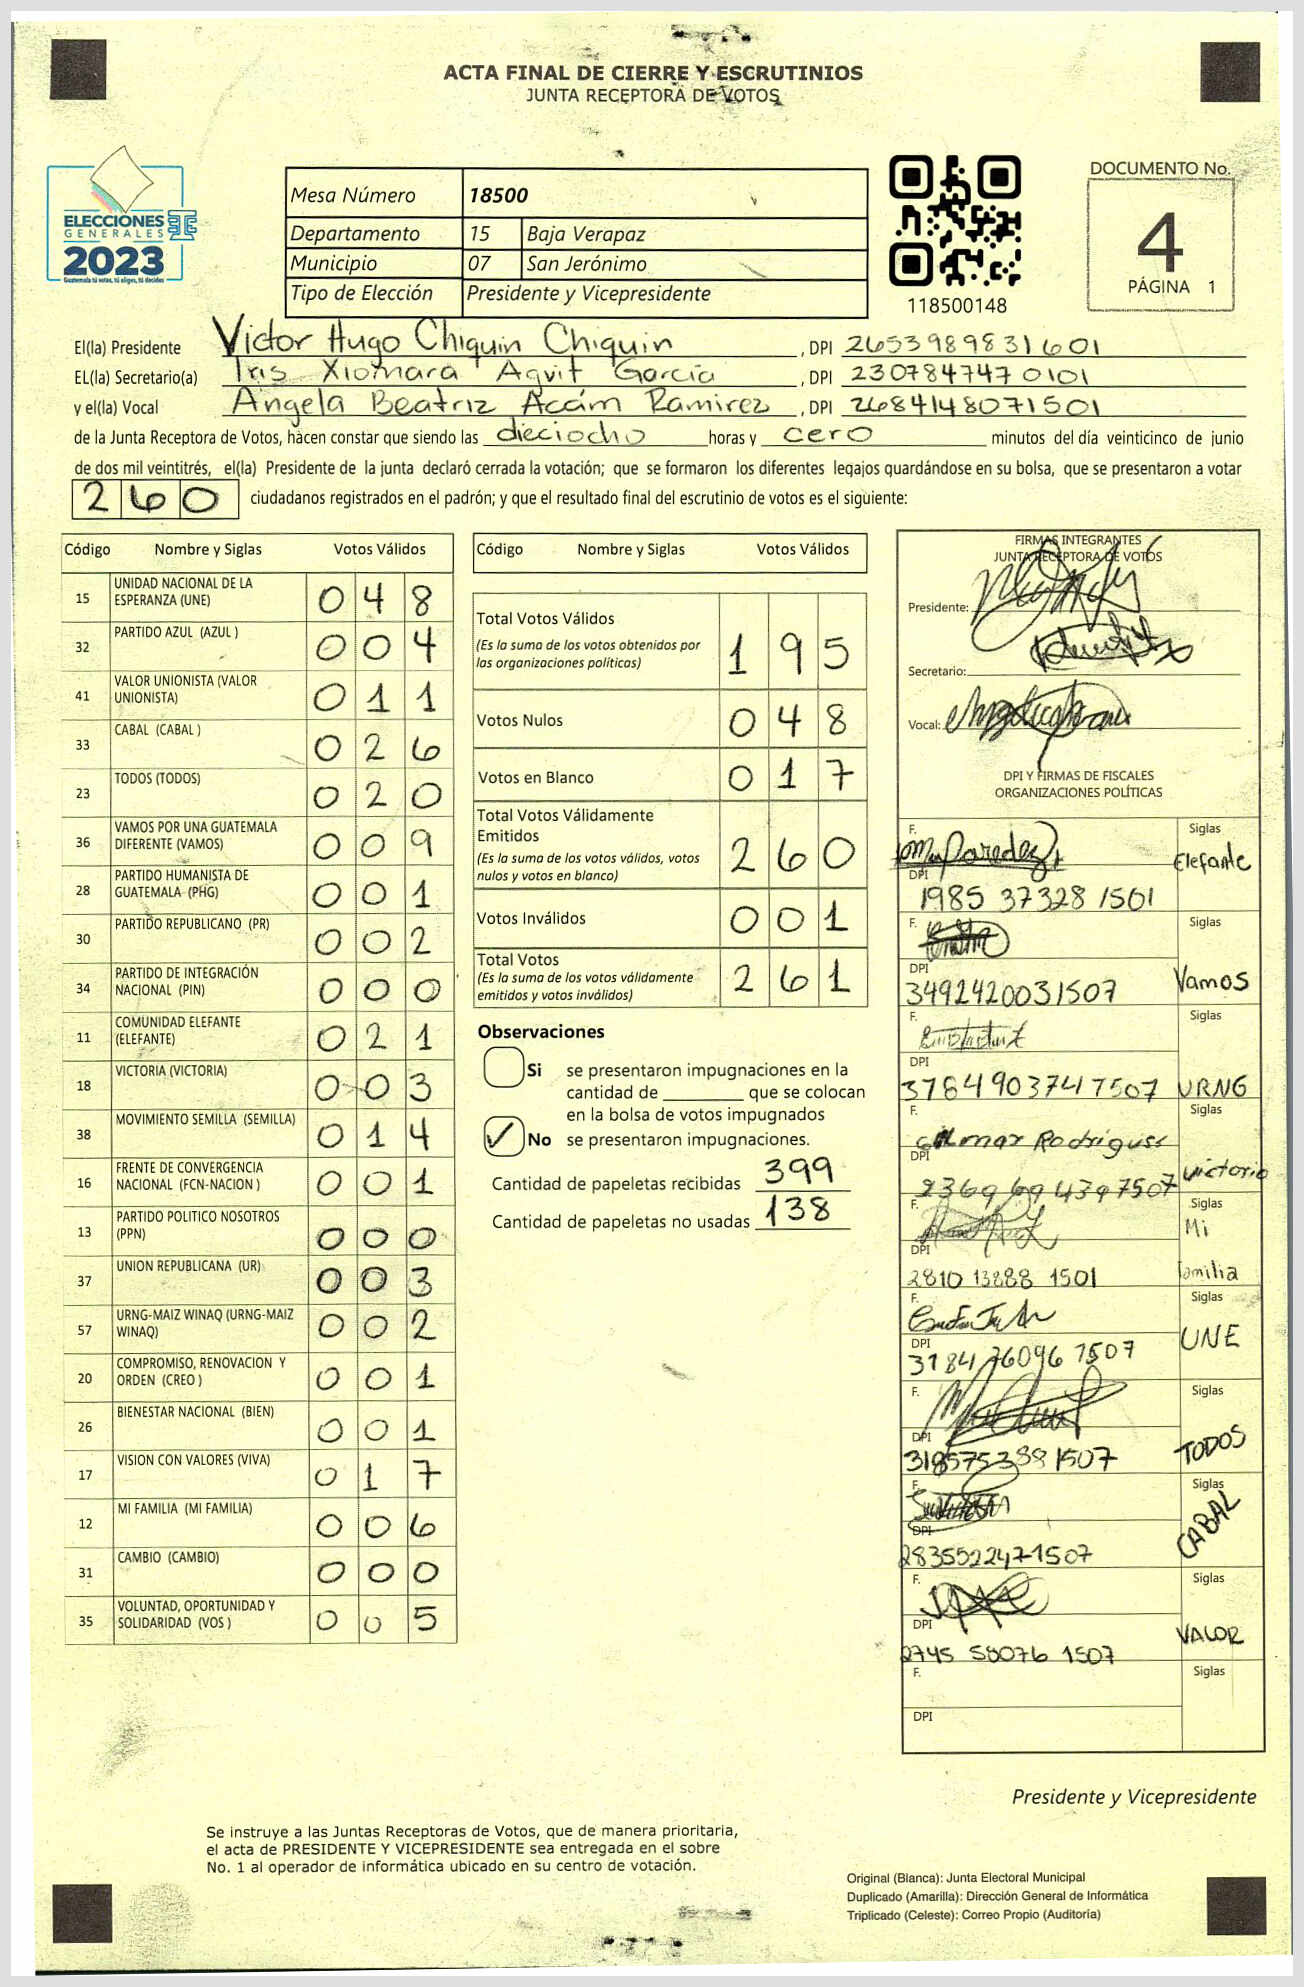 ACTA FINAL DE CIERRE Y ESCRUTINIOS
JUNTA RECEPTORA DE VOTOS
ELECCIONES
GENERALES
2023
Guatemala tú votas, tú eliges, tú decides
Mesa Número 18500
Departamento 15 Baja Verapaz
Municipio 07 San Jerónimo
Tipo de Elección Presidente y Vicepresidente
118500148
DOCUMENTO No.
4
PÁGINA 1
El(la) Presidente Victor Hugo Chiquin Chiquin, DPI 2653989831601
EL(la) Secretario(a) Iris Xiomara Aquit García, DPI 2307847470101
y el(la) Vocal Angela Beatriz Acám Ramirez, DPI 2684148071501
de la Junta Receptora de Votos, hacen constar que siendo las dieciocho horas y cero minutos del día veinticinco de junio
de dos mil veintitrés, el(la) Presidente de la junta declaró cerrada la votación; que se formaron los diferentes legajos guardándose en su bolsa, que se presentaron a votar
260 ciudadanos registrados en el padrón; y que el resultado final del escrutinio de votos es el siguiente:
Código Nombre y Siglas Votos Válidos
15 UNIDAD NACIONAL DE LA ESPERANZA (UNE) 048
32 PARTIDO AZUL (AZUL ) 004
41 VALOR UNIONISTA (VALOR UNIONISTA) 011
33 CABAL (CABAL ) 026
23 TODOS (TODOS) 020
36 VAMOS POR UNA GUATEMALA DIFERENTE (VAMOS) 009
28 PARTIDO HUMANISTA DE GUATEMALA (PHG) 001
30 PARTIDO REPUBLICANO (PR) 002
34 PARTIDO DE INTEGRACIÓN NACIONAL (PIN) 000
11 COMUNIDAD ELEFANTE (ELEFANTE) 021
18 VICTORIA (VICTORIA) 003
38 MOVIMIENTO SEMILLA (SEMILLA) 014
16 FRENTE DE CONVERGENCIA NACIONAL (FCN-NACION ) 001
13 PARTIDO POLITICO NOSOTROS (PPN) 000
37 UNION REPUBLICANA (UR) 003
57 URNG-MAIZ WINAQ (URNG-MAIZ WINAQ) 002
20 COMPROMISO, RENOVACION Y ORDEN (CREO ) 001
26 BIENESTAR NACIONAL (BIEN) 001
17 VISION CON VALORES (VIVA) 017
12 MI FAMILIA (MI FAMILIA) 006
31 CAMBIO (CAMBIO) 000
35 VOLUNTAD, OPORTUNIDAD Y SOLIDARIDAD (VOS ) 005
Código Nombre y Siglas Votos Válidos
Total Votos Válidos 195
(Es la suma de los votos obtenidos por las organizaciones políticas)
Votos Nulos 048
Votos en Blanco 017
Total Votos Válidamente Emitidos 260
(Es la suma de los votos válidos, votos nulos y votos en blanco)
Votos Inválidos 001
Total Votos 261
(Es la suma de los votos válidamente emitidos y votos inválidos)
Observaciones
Si se presentaron impugnaciones en la
cantidad de ________ que se colocan
en la bolsa de votos impugnados
✓ No se presentaron impugnaciones.
Cantidad de papeletas recibidas 399
Cantidad de papeletas no usadas 138
FIRMAS INTEGRANTES
JUNTA RECEPTORA DE VOTOS
Presidente:
Secretario:
Vocal:
DPI Y FIRMAS DE FISCALES
ORGANIZACIONES POLÍTICAS
F. Siglas
Elefante
DPI
1985 37328 1501
F. Siglas
DPI
3492420031507 Vamos
F. Siglas
DPI
3784903747507 URNG
F. Siglas
DPI
2369694397507 Victoria
F. Siglas
Mi
DPI
2810 13888 1501 familia
F. Siglas
UNE
DPI
3184760967507
F. Siglas
DPI
3185753881507 TODOS
F. Siglas
CABAL
DPI
2835522471507
F. Siglas
DPI
VALOR
2745 58076 1507
F. Siglas
DPI
Presidente y Vicepresidente
Se instruye a las Juntas Receptoras de Votos, que de manera prioritaria,
el acta de PRESIDENTE Y VICEPRESIDENTE sea entregada en el sobre
No. 1 al operador de informática ubicado en su centro de votación.
Original (Blanca): Junta Electoral Municipal
Duplicado (Amarilla): Dirección General de Informática
Triplicado (Celeste): Correo Propio (Auditoría)